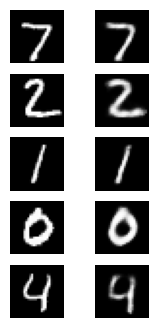 7 7
2 2
1 1
0 0
4 4